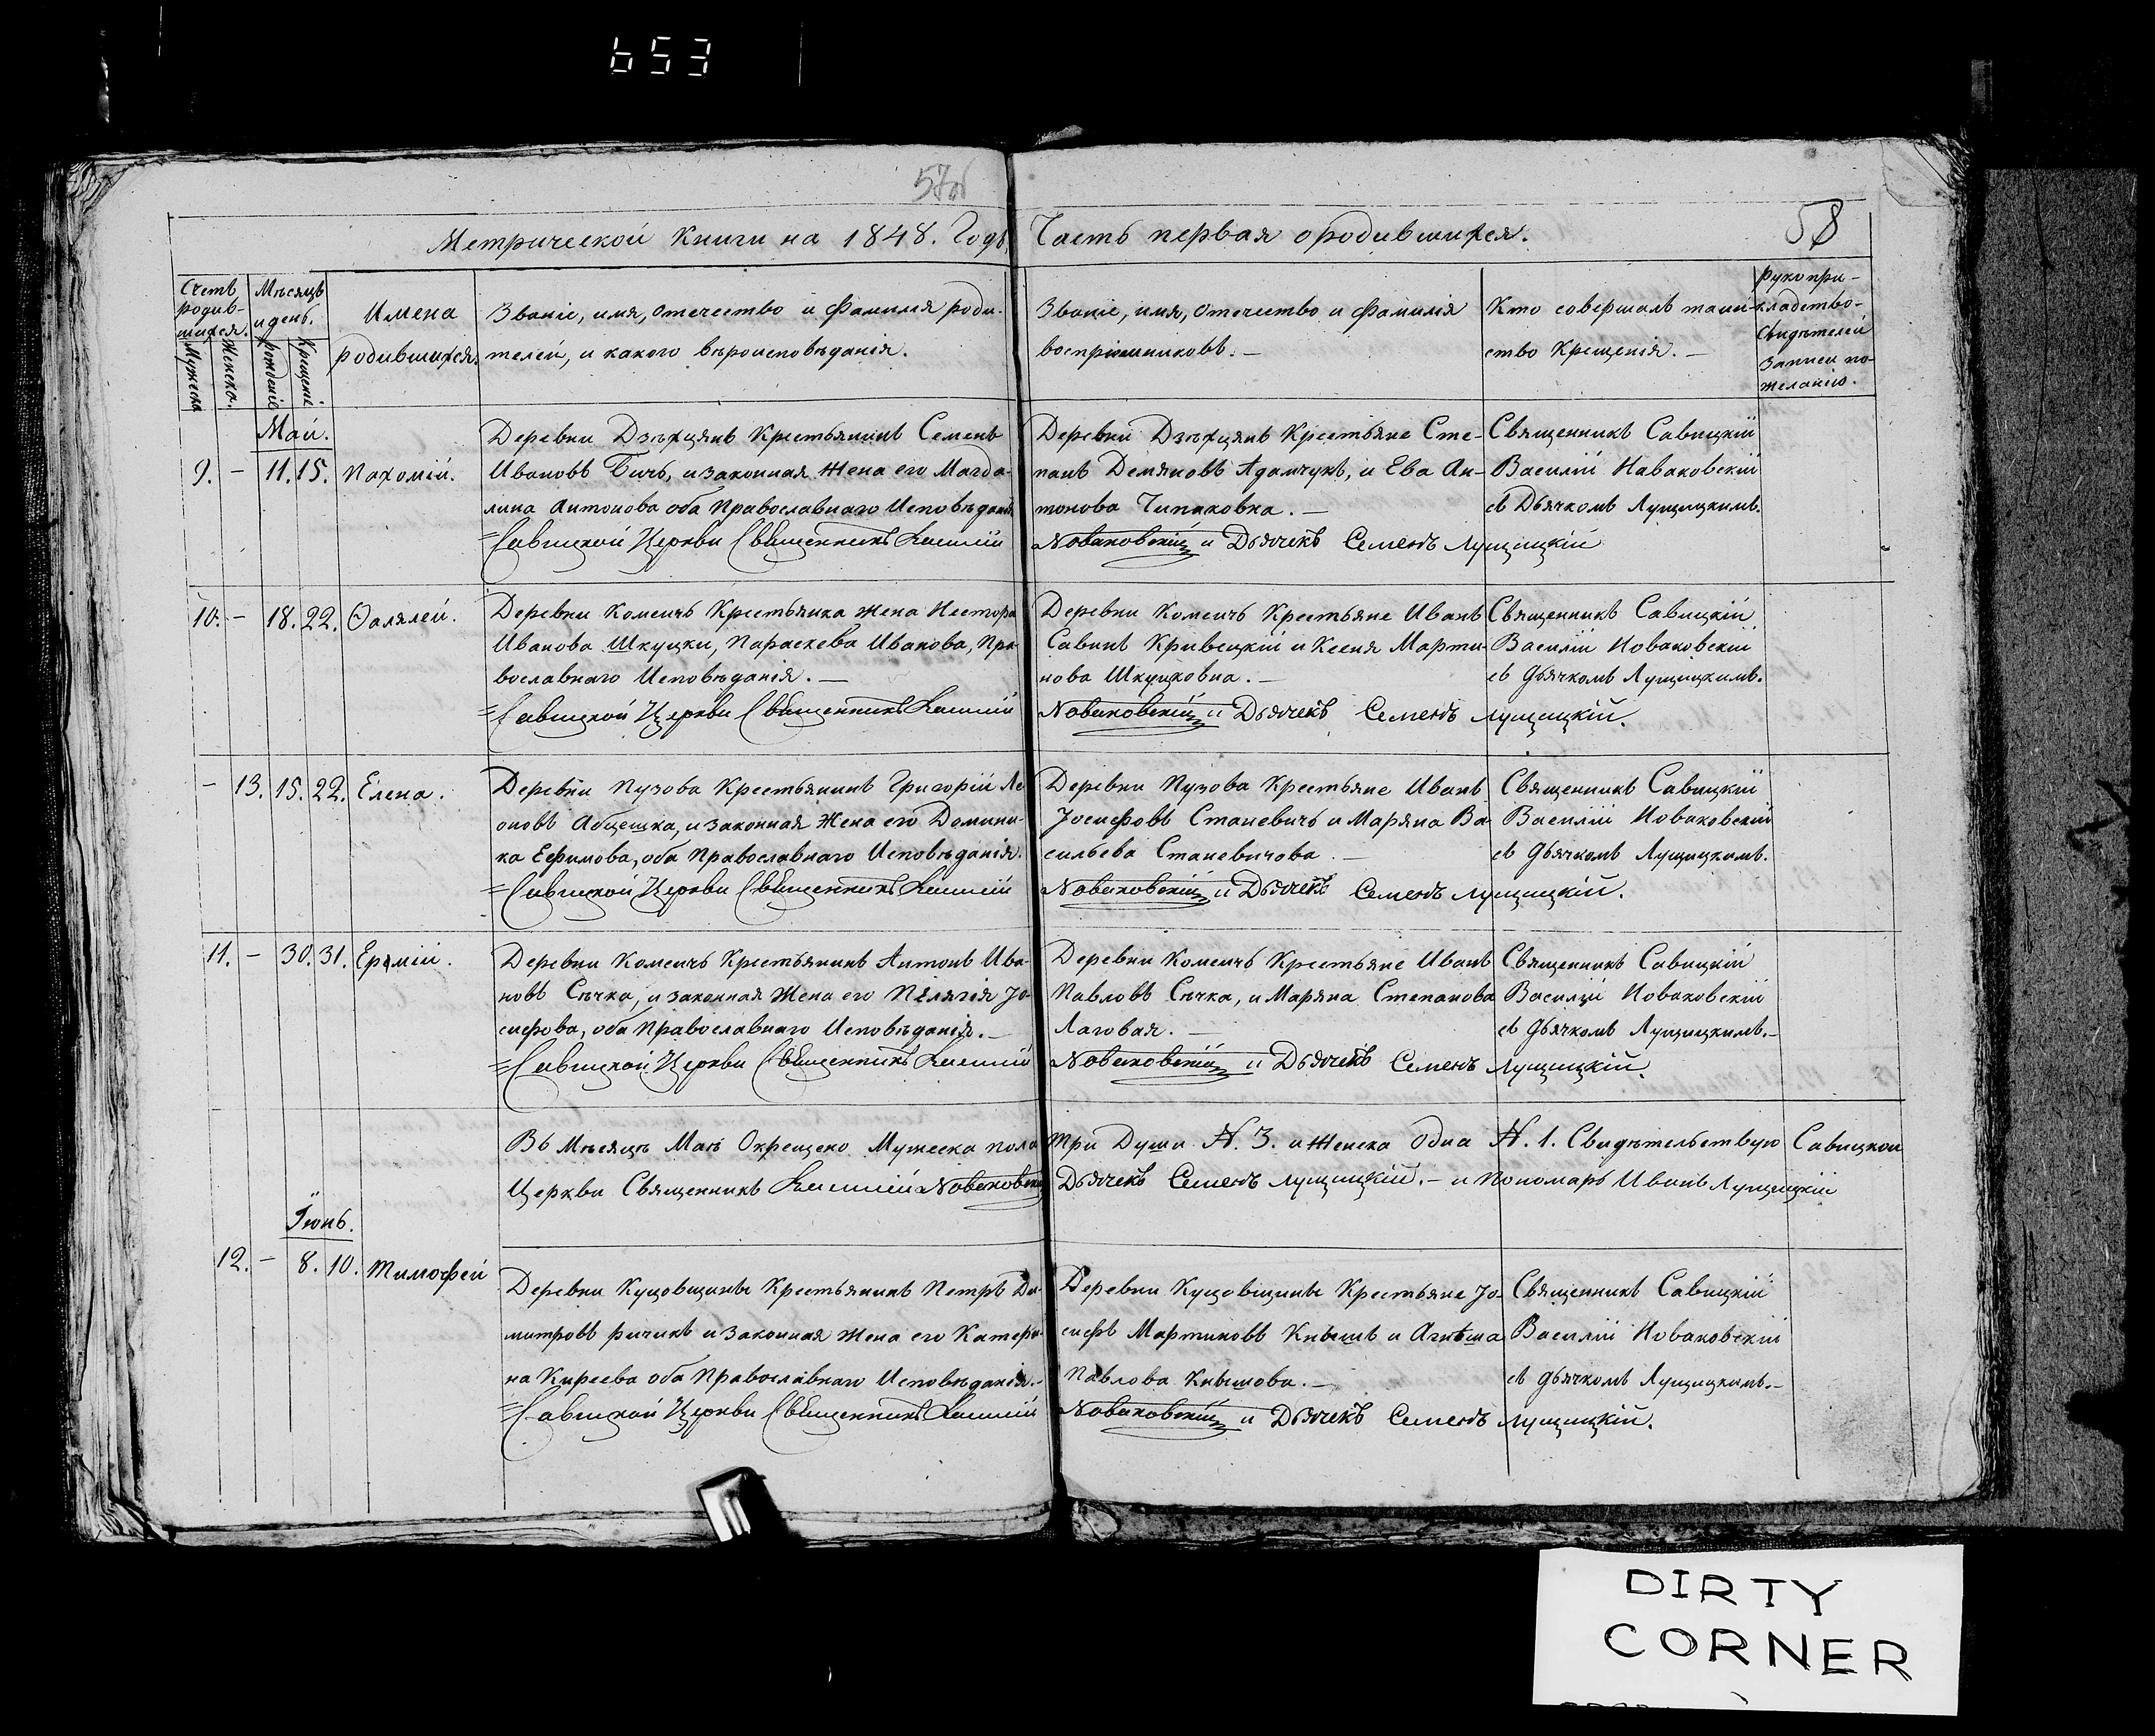 653
57об
58
Метрической Книги на 1848. Годъ, Часть первая о родившихся.
Счетъ родив-шихся.
Мужеска
Женска.
Мѣсяцъ и день.
рожденіе
Крещеніе.
Имена родившихся.
Званіе, имя, отечество и Фамилія роди-
телей, и какого вѣроисповѣданія.
Званіе, имя, отечество и Фамилія
воспріемниковъ. —
Кто совершалъ таин-
ство Крещенія. —
рукопри-
кладство-
Свидѣтелей
Записи по-
желанію.
Май.
9. — 11. 15. Пахомій.
Деревни Дзѣхцянъ Крестьянинъ Семенъ
Ивановъ Бичъ, и законная Жена его Магда-
лина Антонова оба Православнаго Исповѣданія
=Савицкой Церкви Священникъ Василій
Деревни Дзѣхцянъ Крестьяне Сте-
панъ Демяновъ Адамчукъ, и Ева Ан-
тонова Чипаковна. —
Новаковскій и Дьячекъ Семенъ Лущицкій
Священникъ Савицкій
Василій Наваковскій
съ Дьячкомъ Лущицкимъ.
10. — 18. 22. Фалялей.
Деревни Комсичъ Крестьянка жена Нестора
Иванова Шкуцки, Параскева Иванова, Пра-
вославнаго Исповѣданія. —
=Савицкой Церкви Священникъ Василій
Деревни Комсичъ Крестьяне Иванъ
Савинъ Кривецкій и Ксеня Марти-
нова Шкуцковна. —
Новаковскій и Дьячекъ Семенъ Лущицкій.
Священникъ Савицкій
Василій Новаковскій
съ дьячкомъ Лущицкимъ.
— 13. 15. 22. Елена.
Деревни Пузова Крестьянинъ Григорій Ле-
оновъ Абцешка, и законная Жена его Домини-
ка Ефимова, оба Православнаго Исповѣданія.
=Савицкой Церкви Священникъ Василій
Деревни Пузова Крестьяне Иванъ
Іосифовъ Станевичъ и Маряна Ва-
сильева Станевичова. —
Новаковскій и Дьячекъ Семенъ Лущицкій.
Священникъ Савицкій
Василій Новаковскій
съ дьячкомъ Лущицкимъ.
11. — 30. 31. Ермій.
Деревни Комсичъ Крестьянинъ Антонъ Ива-
новъ Сѣчка, и законная Жена его Пелягія Іо-
сифова, оба Православнаго Исповѣданія. —
=Савицкой Церкви Священникъ Василій
Деревни Комсичъ Крестьяне Иванъ
Павловъ Сѣчка, и Маряна Степанова
Лаговая. —
Новаковскій и Дьячекъ Семенъ Лущицкій.
Священникъ Савицкій
Василій Новаковскій
съ дьячкомъ Лущицкимъ. —
Въ Мѣсяцѣ Маѣ Окрещено Мужеска пола Три Души N. 3. и Женска Одна N. 1. Свидѣтельствую Савицкой
Церкви Священникъ Василій Новаковскій Дьячекъ Семенъ Лущицкій. — и Пономарь Иванъ Лущицкій
Іюнь.
12. — 8. 10. Тимофей
Деревни Куцовщины Крестьянинъ Петръ Ди-
митровъ ричикъ и законная жена его Катери-
на Киреева оба Православнаго Исповѣданія. —
=Савицкой Церкви Священникъ Василій
Деревни Куцовщины Крестьяне Іо-
сифъ Мартиновъ Книшъ и Агнѣша
Павлова Книшова. —
Новаковскій и Дьячекъ Семенъ Лущицкій.
Священникъ Савицкій
Василій Новаковскій
съ дьячкомъ Лущицкимъ. —
DIRTY
CORNER